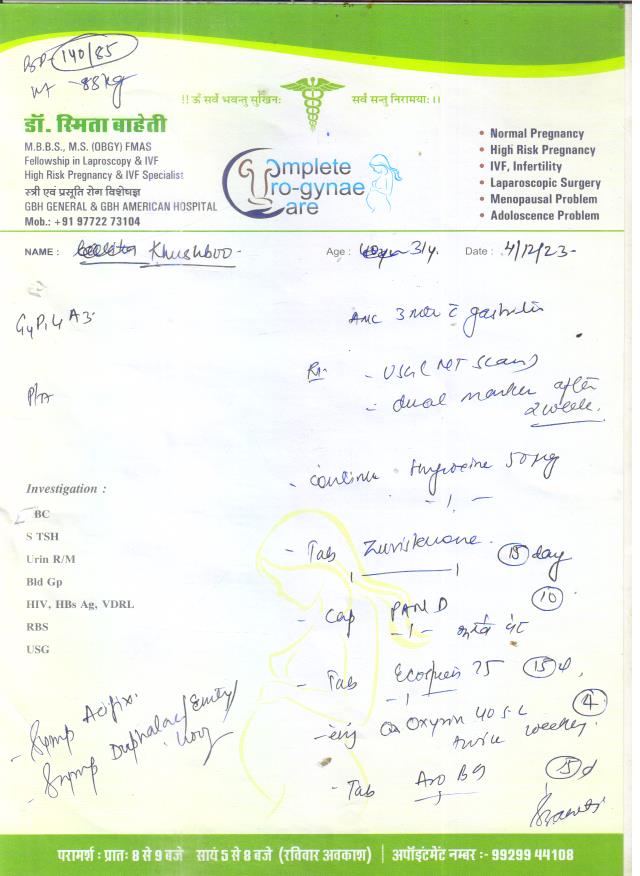 BP- 140/85
Wt - 88kg
!! ॐ सर्वे भवन्तु सुखिनः सर्व सन्तु निरामयाः।।
डॉ. स्मिता बाहेती
M.B.B.S., M.S. (OBGY) FMAS
Fellowship in Laproscopy & IVF
High Risk Pregnancy & IVF Specialist
स्त्री एवं प्रसूति रोग विशेषज्ञ
GBH GENERAL & GBH AMERICAN HOSPITAL
Mob.: +91 97722 73104
Complete
Uro-gynae
Care
• Normal Pregnancy
• High Risk Pregnancy
• IVF, Infertility
• Laparoscopic Surgery
• Menopausal Problem
• Adoloscence Problem
NAME : Khushboo - Age : 31y. Date : 4/12/23-
ANC 3 c gastritis
P/A
Rx - USG (NT scan)
- dual marker after
2 week.
- continue thyroxine 50 µg
- 1 -
Investigation :
BC
S TSH
Urin R/M
Bld Gp
HIV, HBs Ag, VDRL
RBS
USG
- Tab 15 day
1 1
- Cap PAN D 10
- 1 -
- Tab Ecosprin 75 15 d
- 1 -
- inj 4
twice weekly
- Tab 15 d
- Syrup Acifix.
- Syrup Duphalac/
परामर्श : प्रातः 8 से 9 बजे सायं 5 से 8 बजे (रविवार अवकाश) | अपॉइंटमेंट नम्बर :- 99299 44108